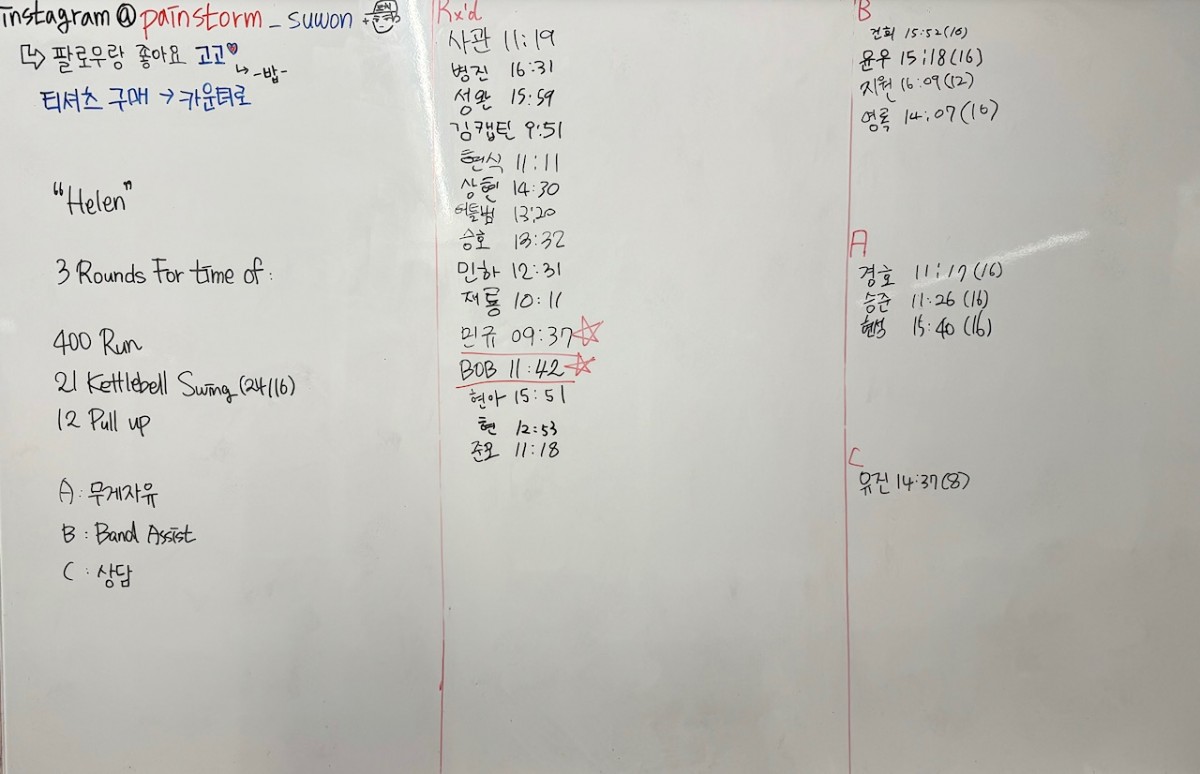 instagram @ painstorm _ suwon
팔로우랑 좋아요 고고
-밥-
티셔츠 구매 → 카운터로
"Helen"
3 Rounds For time of :
400 Run
21 Kettlebell Swing (24/16)
12 Pull up
A : 무게자유
B : Band Assist
C : 상담
Rx'd
사관 11:19
병진 16:31
성완 15:59
김캡틴 9:51
현식 11:11
상현 14:30
13:20
승호 13:32
민하 12:31
재룡 10:11
민규 09:37
BOB 11:42
현아 15:51
현 12:53
준모 11:18
B
건희 15:52(16)
윤우 15:18(16)
지원 16:09(12)
영록 14:07(16)
A
경호 11:17(16)
승준 11:26(16)
현석 15:40(16)
C
유진 14:37(8)